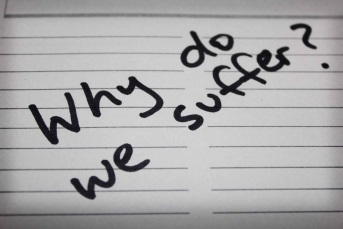 Why do
we suffer?